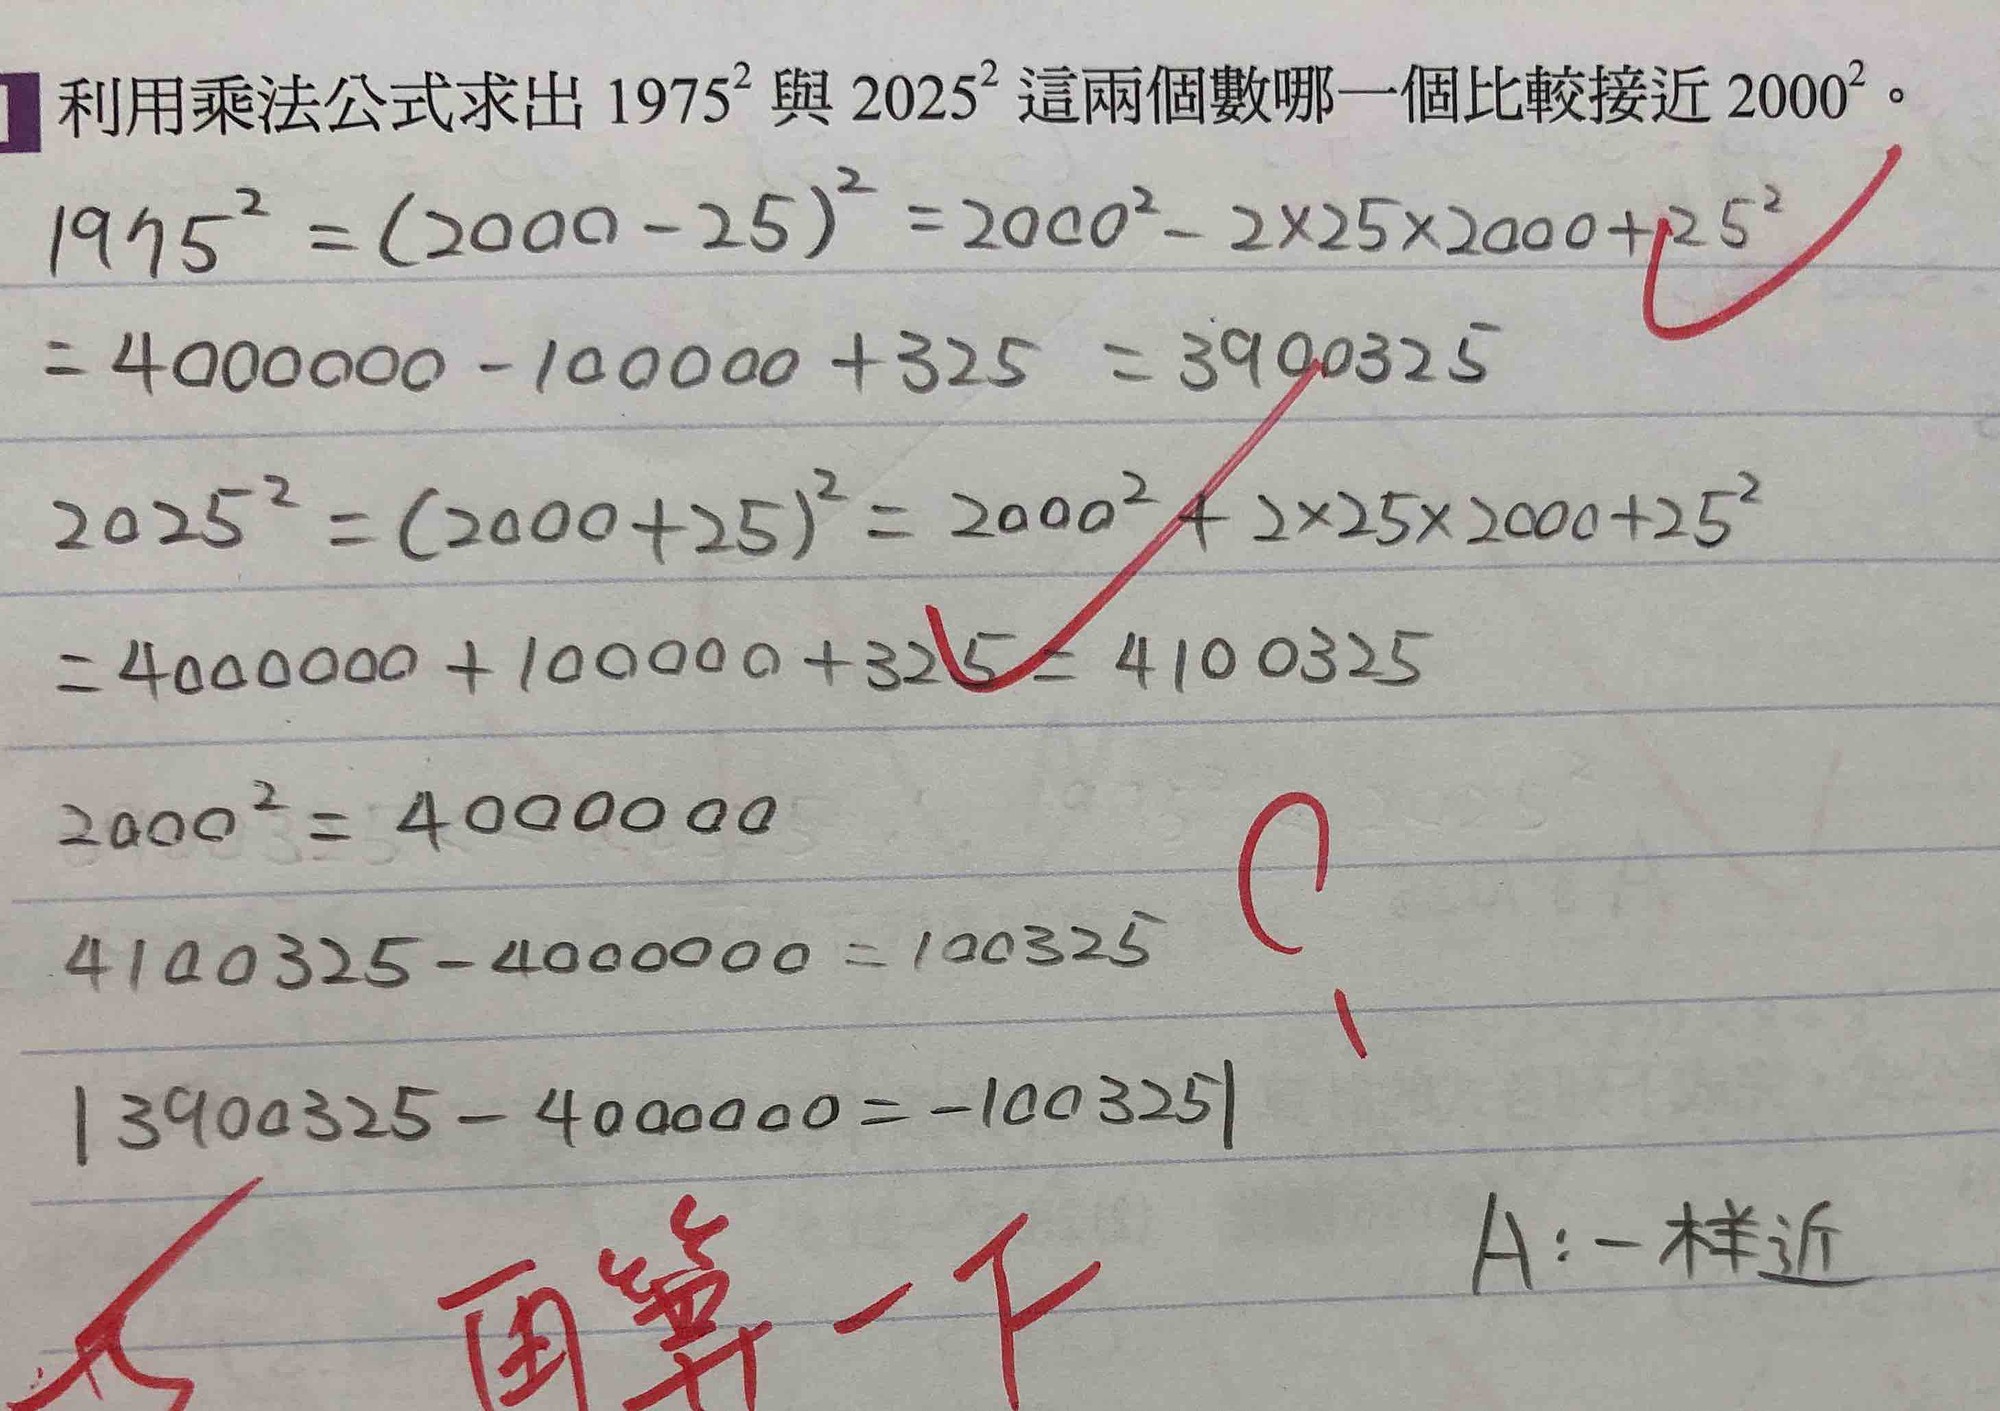 利用乘法公式求出 1975² 與 2025² 這兩個數哪一個比較接近 2000²。
1975² = (2000-25)² = 2000² - 2×25×2000+25²
= 4000000 - 100000 + 325 = 3900325
2025² = (2000+25)² = 2000² + 2×25×2000+25²
= 4000000 + 100000 + 325 = 4100325
2000² = 4000000
4100325 - 4000000 = 100325
|3900325 - 4000000 = -100325|
A:一样近
再算一下